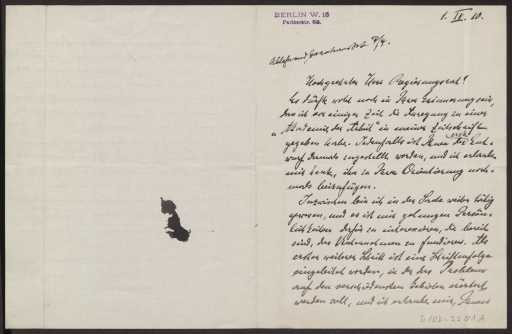 BERLIN W. 15
Pariserstr. 62.
1. IX. 10.
Hochgeehrter Herr Regierungsrat!
Es dürfte wohl noch in Ihrer Erinnerung sein,
dass ich vor einiger Zeit die Anregung zu einer
„Akademie der Arbeit“ in meiner Zeitschrift
gegeben habe. Jedenfalls ist Ihnen der Ent-
wurf damals zugestellt worden, und ich erlaube
mir heute, ihn zu Ihrer Orientierung noch-
mals beizufügen.
Inzwischen bin ich in der Sache weiter tätig
gewesen, und es ist mir gelungen Persön-
lichkeiten dafür zu interessieren, die bereit
sind, das Unternehmen zu fundieren. Als
erster weiterer Schritt ist eine Schriftenfolge
eingeleitet worden, in der das Problem
auf den verschiedensten Gebieten erörtert
werden soll, und ich erlaube mir, Ihnen